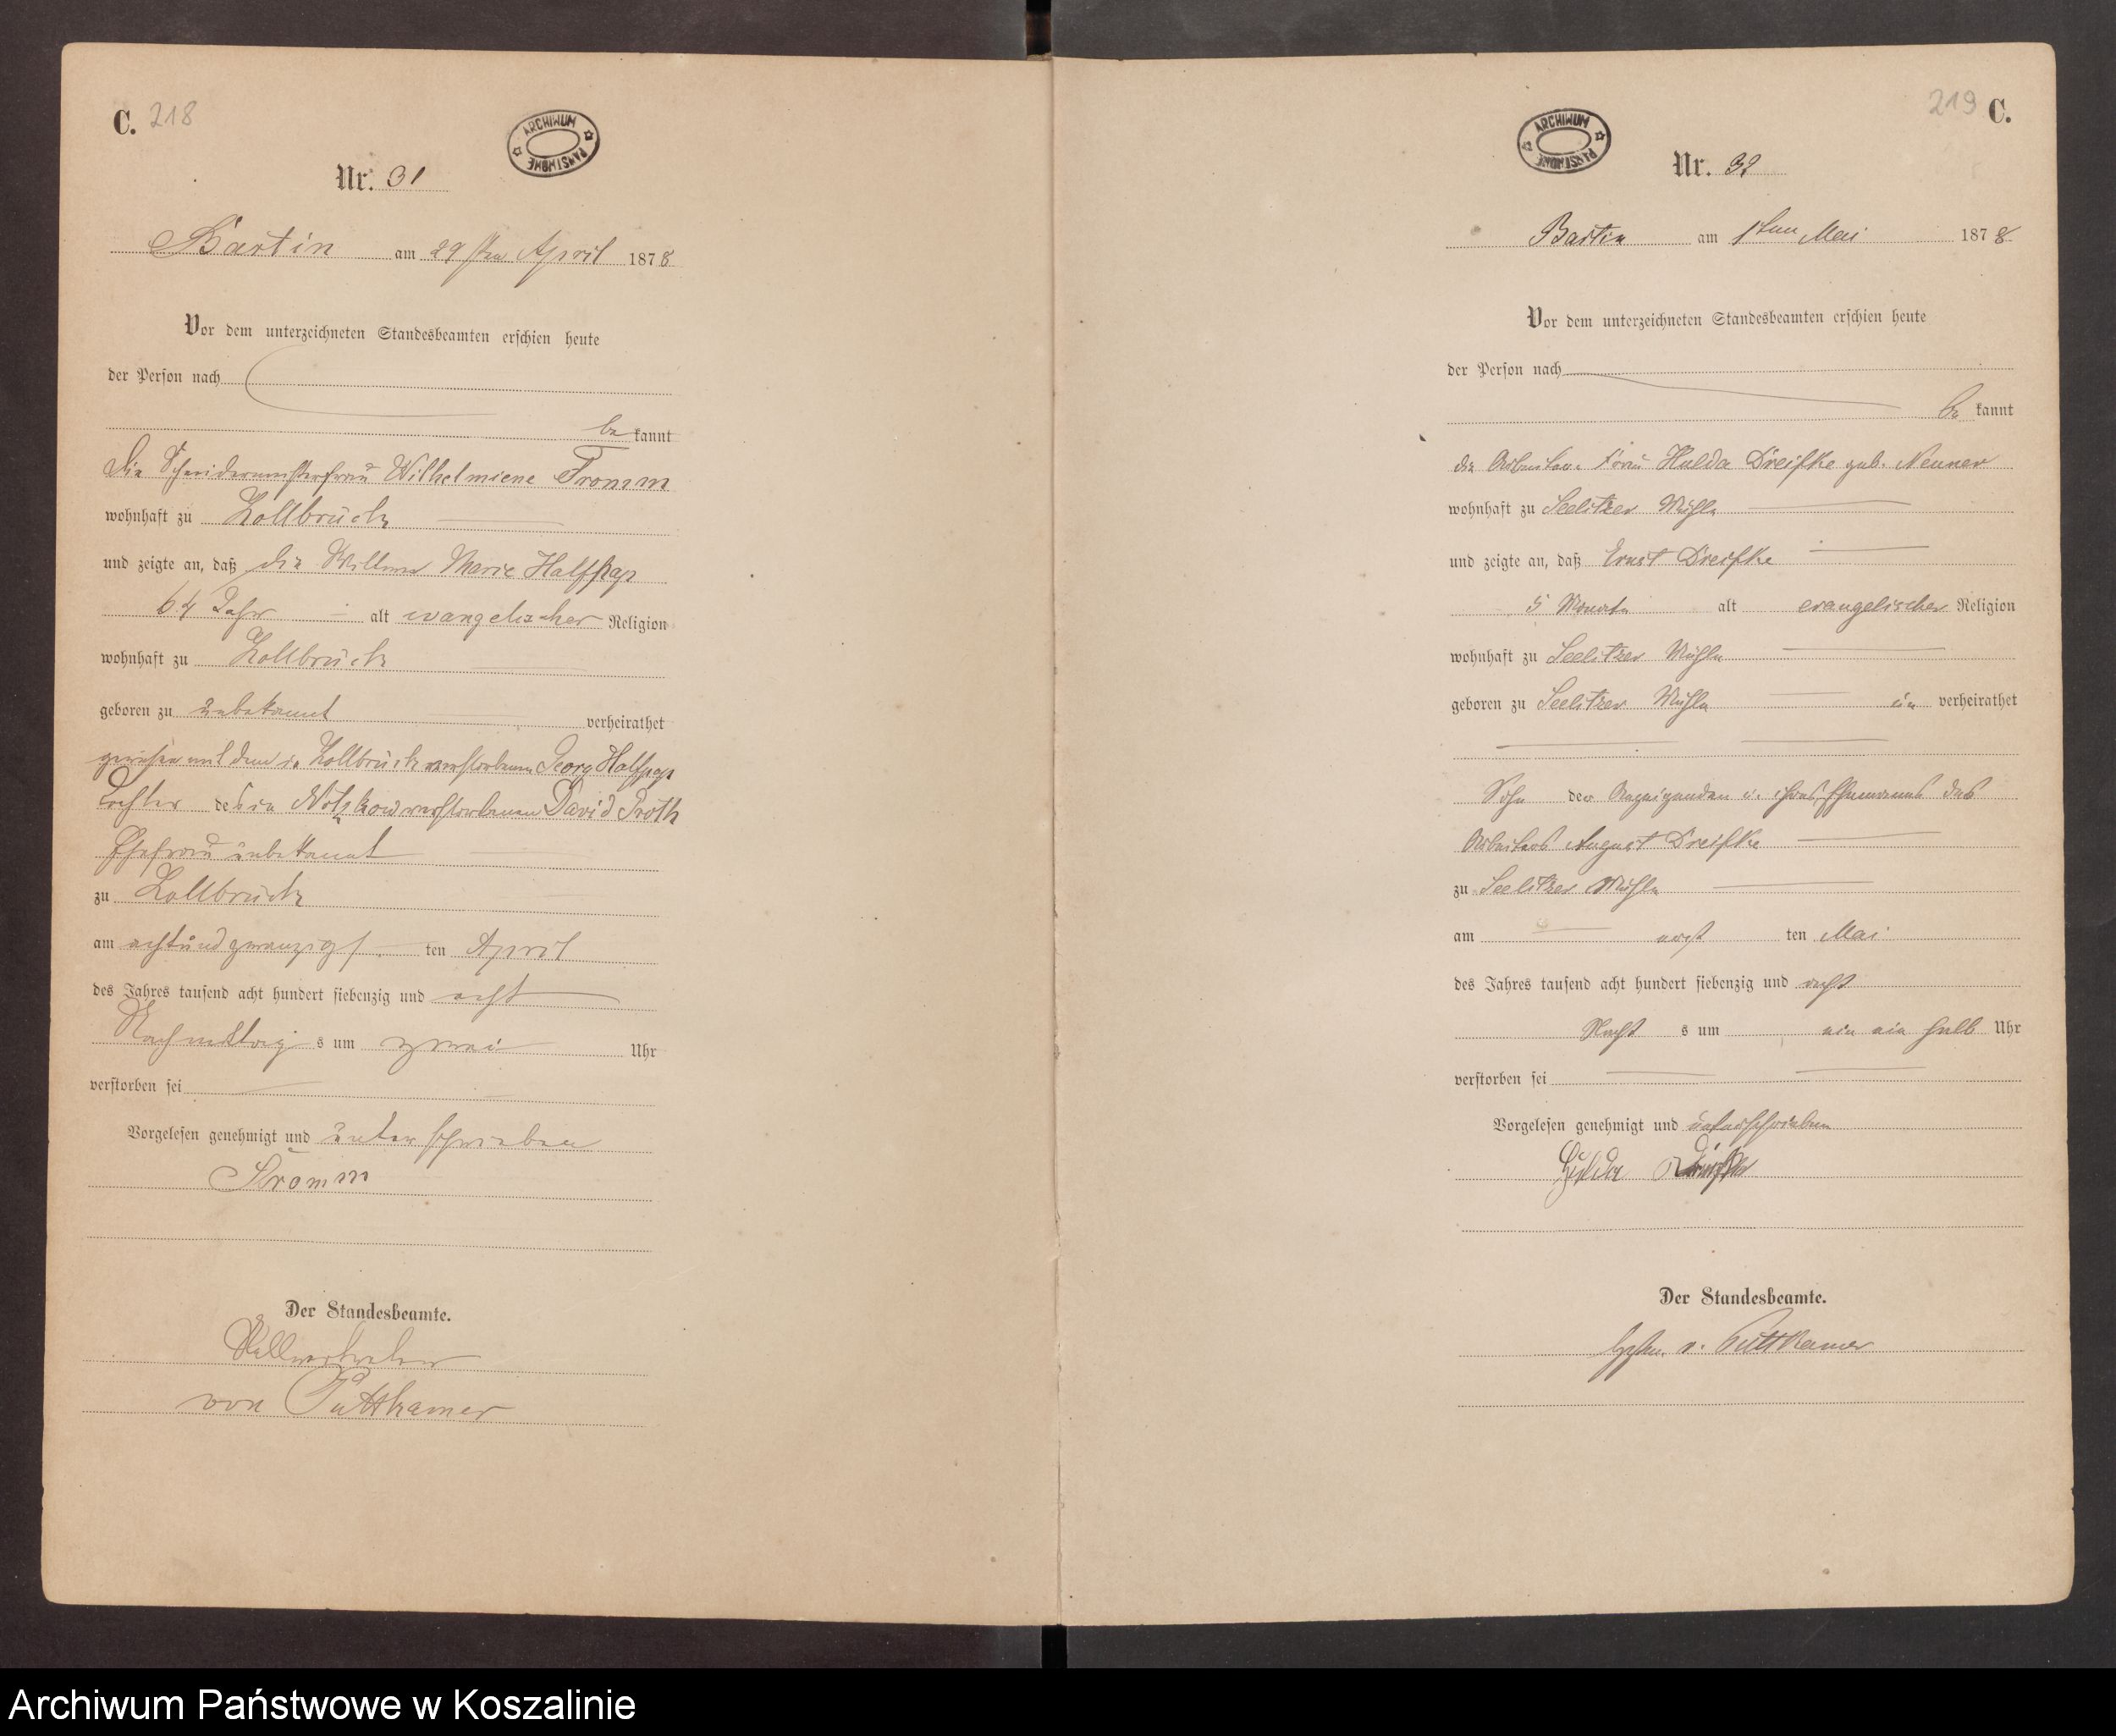 C. 218
ARCHIWUM PAŃSTWOWE
Nr. 31
Bartin am 29sten April 1878
Vor dem unterzeichneten Standesbeamten erschien heute
der Person nach
be kannt
die Schneidermeisterfrau Wilhelmiene Fromm
wohnhaft zu Zollbrück
und zeigte an, daß die Wittwe Marie Halfpap
64 Jahr alt evangelischer Religion
wohnhaft zu Zollbrück
geboren zu unbekannt verheirathet
gewesen mit dem in Zollbrück verstorbenen Georg Halfpap
Tochter des in Nötzkow verstorbenen David Proth
Ehefrau unbekannt
zu Zollbrück
am achtundzwanzigs ten April
des Jahres tausend acht hundert siebenzig und acht
Nachmittag s um zwei Uhr
verstorben sei
Vorgelesen genehmigt und unterschrieben
Fromm
Der Standesbeamte.
von Puttkamer
219 C.
ARCHIWUM PAŃSTWOWE
Nr. 32
Bartin am 1sten Mai 1878
Vor dem unterzeichneten Standesbeamten erschien heute
der Person nach
be kannt
die Arbeiter Frau Hulda Dreifke geb. Neuner
wohnhaft zu Seelitzer Mühle
und zeigte an, daß Ernst Dreifke
5 Monate alt evangelischer Religion
wohnhaft zu Seelitzer Mühle
geboren zu Seelitzer Mühle un verheirathet
Sohn der Anzeigenden u. ihres Ehemanns des
Arbeiters August Dreifke
zu Seelitzer Mühle
am ers ten Mai
des Jahres tausend acht hundert siebenzig und acht
Nacht s um ein ein halb Uhr
verstorben sei
Vorgelesen genehmigt und unterschrieben
Hulda Dreifke
Der Standesbeamte.
v. Puttkamer
Archiwum Państwowe w Koszalinie